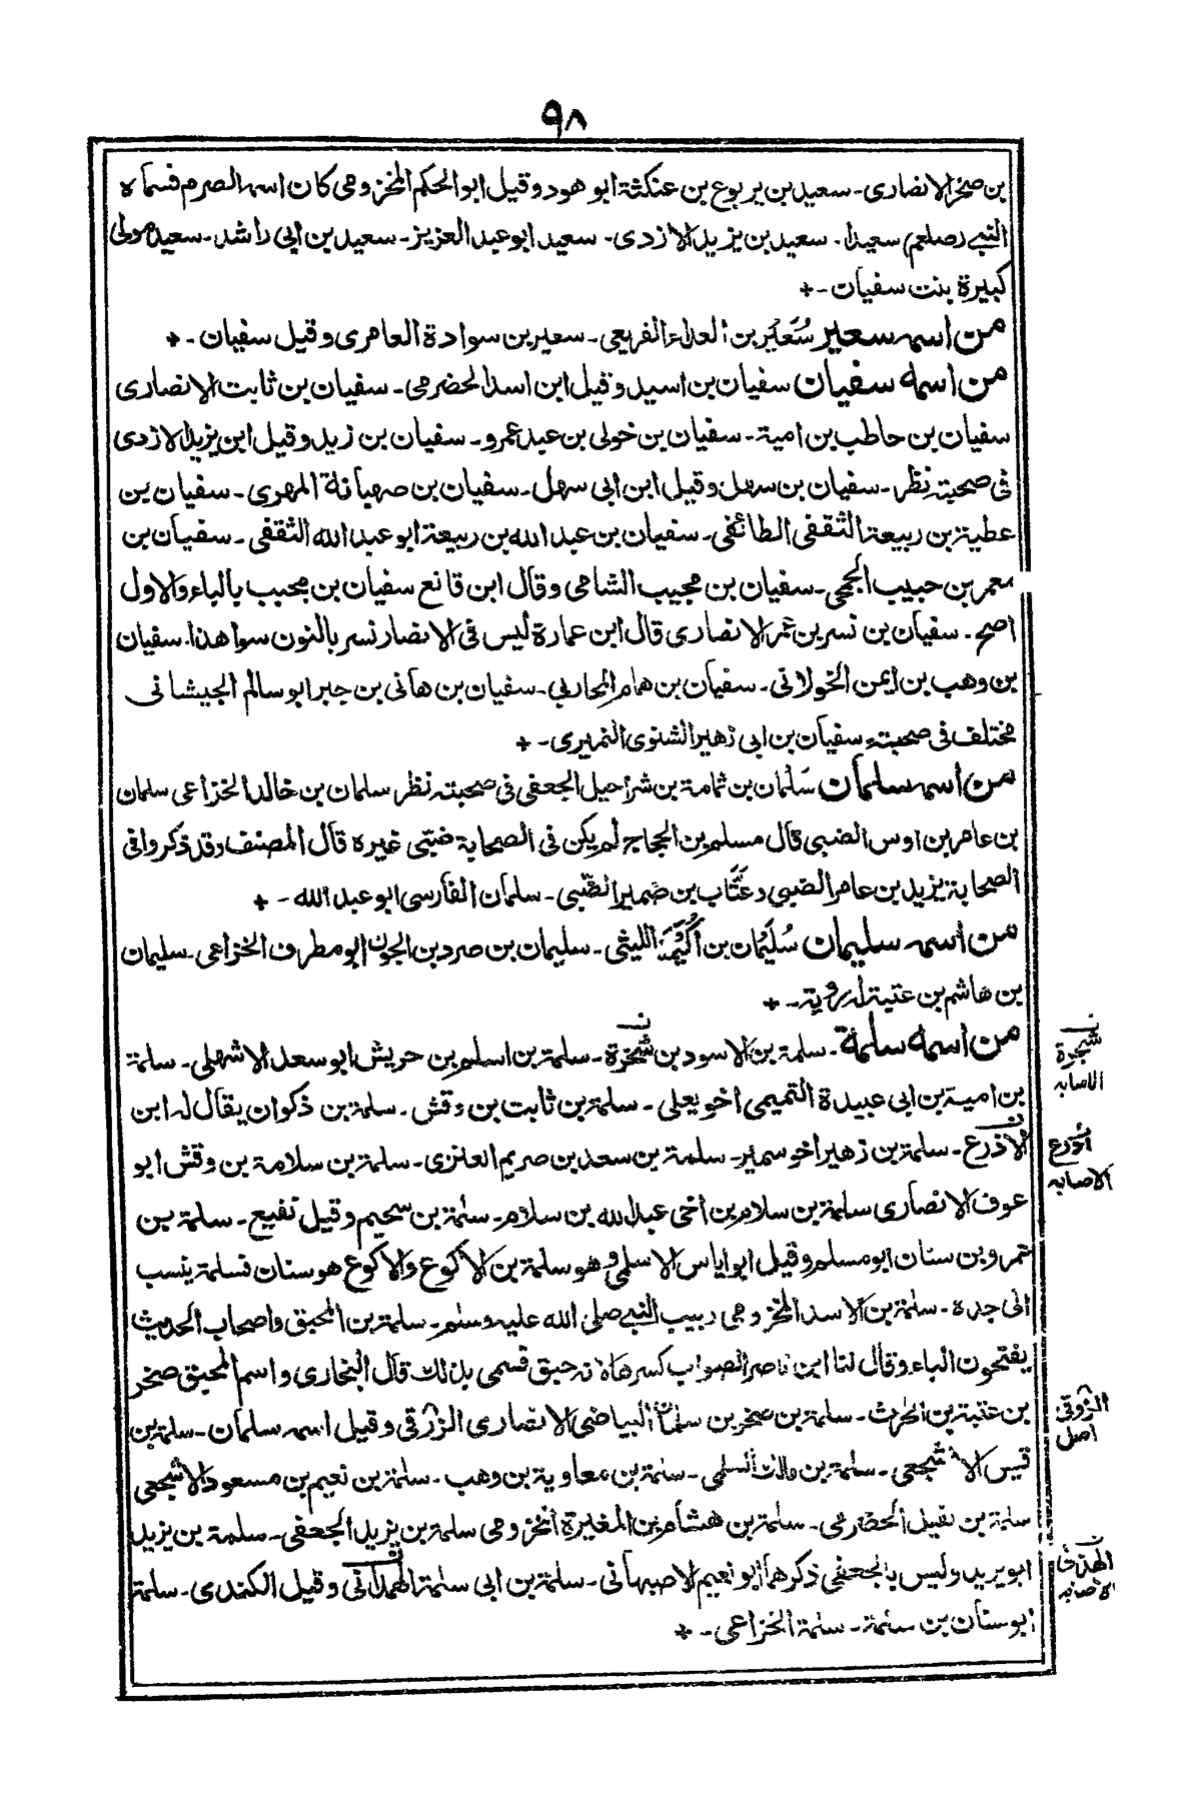 ٩٨
بن صخر الانصاري - سعيد بن يربوع بن عنكثة ابو هود وقيل ابو الحكم المخزومى كان اسمه الصرم فسماه
النبي (صلعم) سعيدا - سعيد بن يزيد الازدى - سعيد ابو عبد العزيز - سعيد بن ابي راشد - سعيد مولى
كبيرة بنت سفيان - +
من اسمه سعير سُعَيْر بن العداء الفريعي - سعير بن سوادة العامرى وقيل سفيان - +
من اسمه سفيان سفيان بن اسيد وقيل ابن اسد الحضرمي - سفيان بن ثابت الانصارى
سفيان بن حاطب بن امية - سفيان بن خولى بن عبد عمرو - سفيان بن زيد وقيل ابن يزيد الازدى
في صحبته نظر - سفيان بن سهل وقيل ابن ابى سهل - سفيان بن صهبانة المهرى - سفيان بن
عطية بن ربيعة الثقفى الطائفى - سفيان بن عبد الله بن ربيعة ابو عبد الله الثقفى - سفيان بن
معمر بن حبيب الجمحى - سفيان بن مجيب الشامى وقال ابن قانع سفيان بن محبب بالباء والاول
اصح - سفيان بن نسر بن عمر الانصارى قال ابن عمارة ليس فى الانصار نسر بالنون سوا هذا - سفيان
بن وهب بن ايمن الخولانى - سفيان بن همام المحاربي - سفيان بن هانى بن جبر ابو سالم الجيشانى
مختلف فى صحبته سفيان بن ابى زهير الشنوى النميرى - +
من اسمه سلمان سَلمان بن ثمامة بن شراحيل الجعفى فى صحبته نظر سلمان بن خالد الخزاعى سلمان
بن عامر بن اوس الضبى قال مسلم بن الحجاج لم يكن فى الصحابة ضبّى غيره قال المصنف وقد ذكروا فى
الصحابة يزيد بن عامر الضبى وعتَّاب بن ضمير الضّبى - سلمان الفارسى ابو عبد الله - +
من اسمه سليمان سُلَيْمان بن اُكَيْمَة الليثى - سليمان بن صرد بن الجون ابو مطرف الخزاعى - سليمان
بن هاشم بن عتبة له رؤية - +
من اسمه سلمة - سلمة بن الاسود بن شخرة - سلمة بن اسلم بن حريش ابو سعد الاشهلى - سلمة
بن امية بن ابى عبيدة التميمى اخو يعلى - سلمة بن ثابت بن وقش - سلمة بن ذكوان يقال له ابن
الاذرع - سلمة بن زهير اخو سمير - سلمة بن سعد بن صريم العنزى - سلمة بن سلامة بن وقش ابو
عوف الانصارى سلمة بن سلام بن اخى عبد الله بن سلام - سلمة بن سحيم وقيل نفيع - سلمة بن
عمرو بن سنان ابو مسلم وقيل ابو اياس الاسلمى وهو سلمة بن الاكوع والاكوع هو سنان فسلمة ينسب
الى جده - سلمة بن الاسد المخزومى ربيب النبي صلى الله عليه وسلم - سلمة بن المحبق واصحاب الحديث
يفتحون الباء وقال لنا ابن ناصر الصواب كسرها لانه حبق فسمى بذلك قال البخارى واسم المحبق صخر
بن عتبة بن الحرث - سلمة بن صخر بن سلمان البياضى الانصارى الزرقى وقيل اسمه سلمان - سلمة بن
قيس الاشجعى - سلمة بن مالك السلمى - سلمة بن معاوية بن وهب - سلمة بن نعيم بن مسعود الاشجعى
سلمة بن نفيل الحضرمى - سلمة بن هشام بن المغيرة المخزومى سلمة بن يزيد الجعفى - سلمة بن يزيد
ابو يريد وليس بالجعفى ذكرهما ابو نعيم الاصبهانى - سلمة بن ابى سلمة الهمدانى وقيل الكندى - سلمة
ابو سنان بن سلمة - سلمة الخزاعى - +
شجرة
الاصابه
ادرع
الاصابه
الزرقى
اصل
الهمدانى
الاصابه